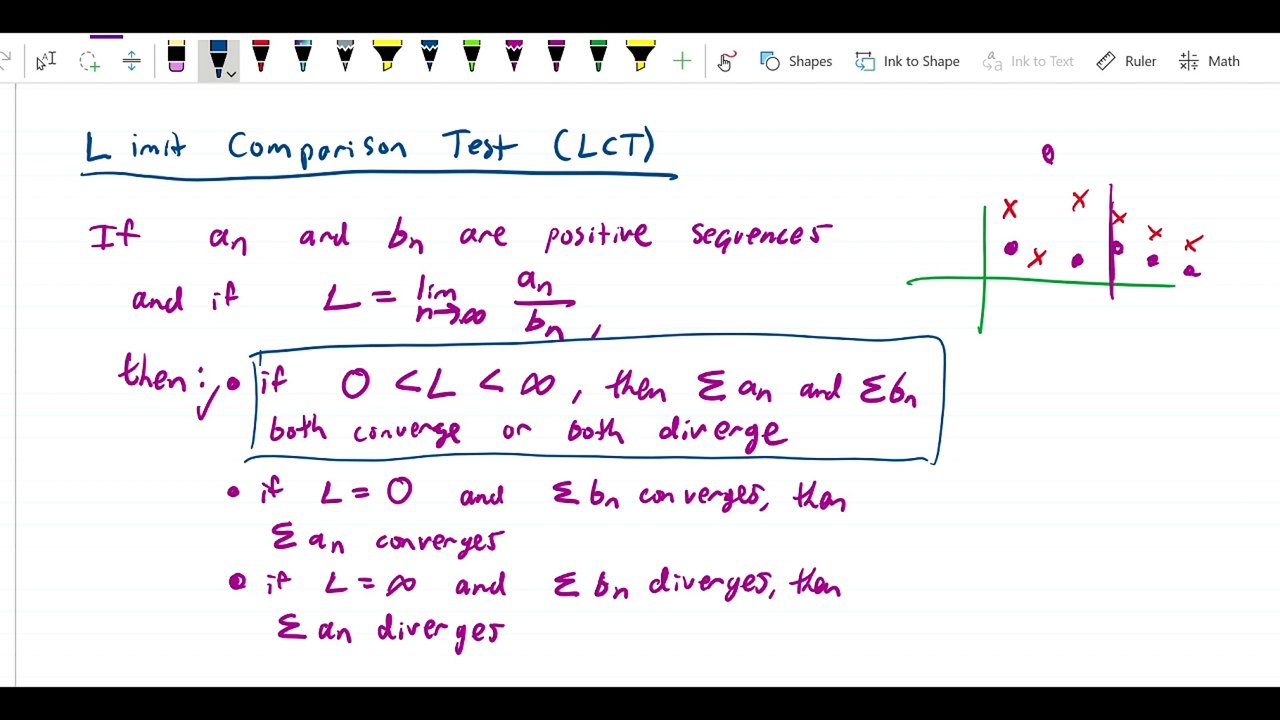 Shapes Ink to Shape Ink to Text Ruler Math
Limit Comparison Test (LCT)
If an and bn are positive sequences
and if L = lim n→∞ an/bn,
then: ✓ • if 0 < L < ∞, then Σ an and Σ bn
both converge or both diverge
• if L = 0 and Σ bn converges, then
Σ an converges
• if L = ∞ and Σ bn diverges, then
Σ an diverges